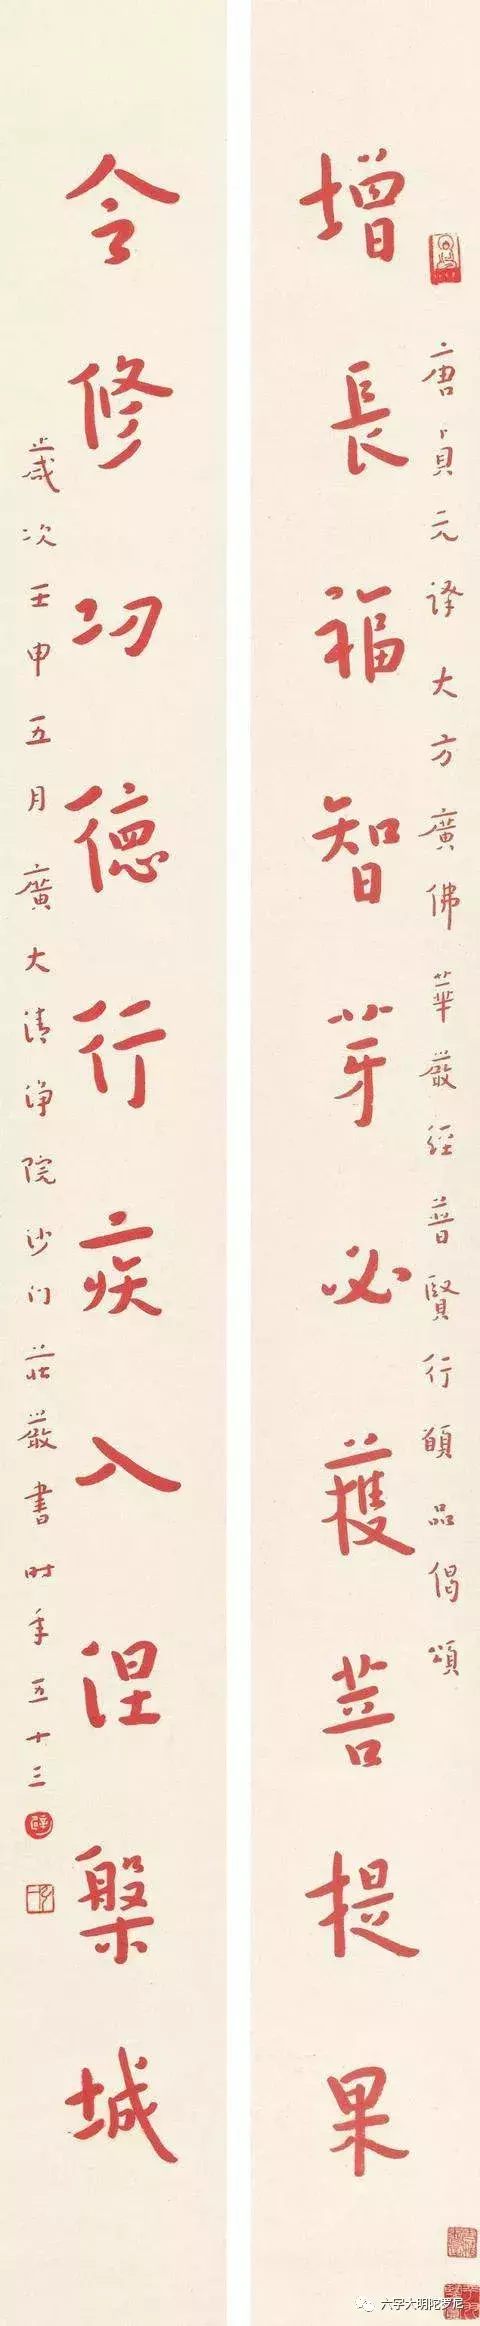 唐貞元译大方廣佛華嚴經普賢行願品偈頌
增長福智芽必獲菩提果
令修功德行疾入涅槃城
歲次壬申五月廣大清淨院沙门莊嚴書时年五十三
六字大明陀罗尼